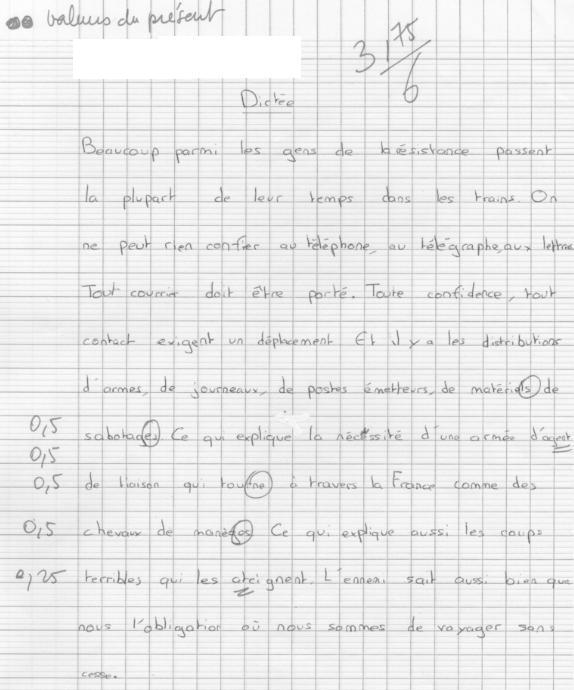 valeurs du présent
3,75/6
Dictée
Beaucoup parmi les gens de la résistance passent
la plupart de leur temps dans les trains. On
ne peut rien confier au téléphone, au télégraphe, aux lettres
Tout courrier doit être porté. Toute confidence, tout
contact exigent un déplacement Et il y a les distributions
d'armes, de journeaux, de postes émetteurs, de matériels de
0,5 sabotages Ce qui explique la nécéssité d'une armée d'agent
0,5
0,5 de liaison qui tourne à travers la France comme des
0,5 chevaux de manèges Ce qui explique aussi les coups
0,25 terribles qui les ateignent. L'ennemi sait aussi bien que
nous l'obligation où nous sommes de voyager sans
cesse.